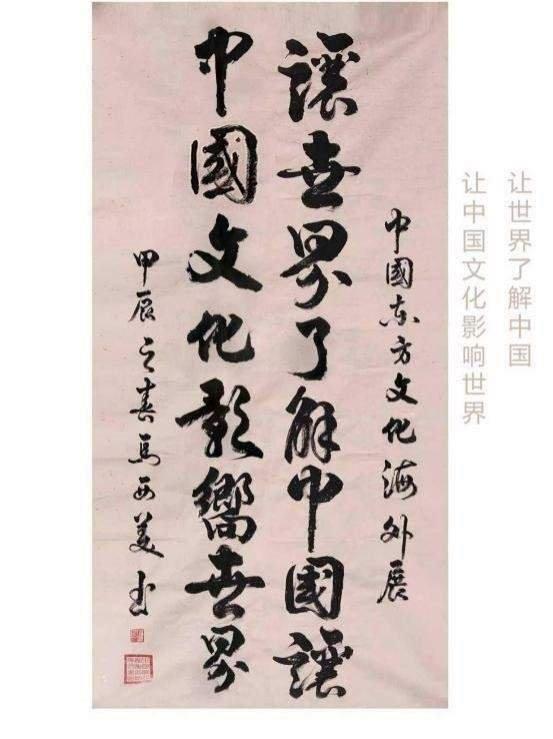 让世界了解中国
让中国文化影响世界
中國东方文化海外展
讓世界了解中國讓
中國文化影響世界
甲辰之春马西美书